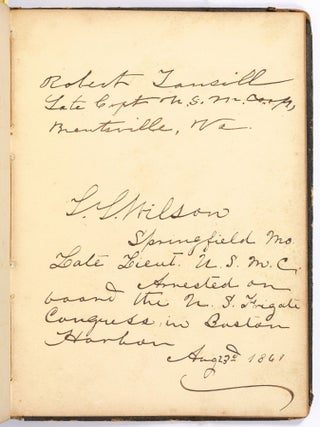 Robert Tansill
Late Capt U.S.M. Corps,
Brentsville, Va.
T. S. Wilson
Springfield Mo.
Late Lieut. U.S.M.C.
Arrested on
board the U.S. Frigate
Congress, in Boston
Harbor
Aug 23d 1861